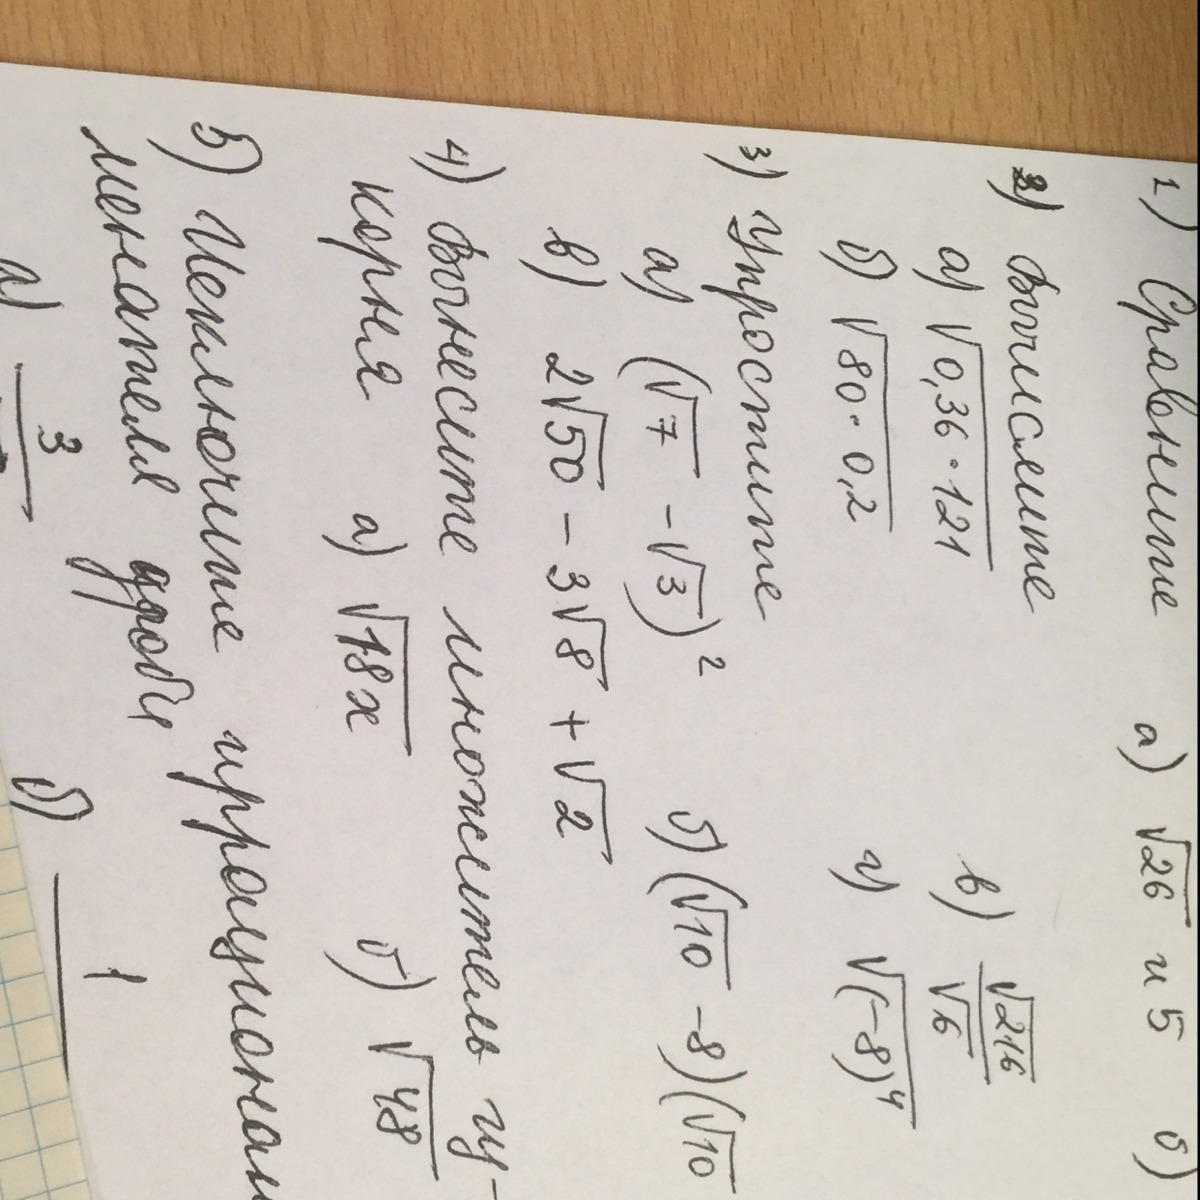 1) Сравните а) √26 и 5 б)
2) Вычислите
а) √0,36·121 в) √216/√6
б) √80·0,2 г) √(-8)⁴
3) Упростите
а) (√7 - √3)² б) (√10 - 8)(√10
в) 2√50 - 3√8 + √2
4) Вынесите множитель из-
корня а) √18х б) √48
5) Исключите иррационал
менателя дроби
а) 3 б) 1